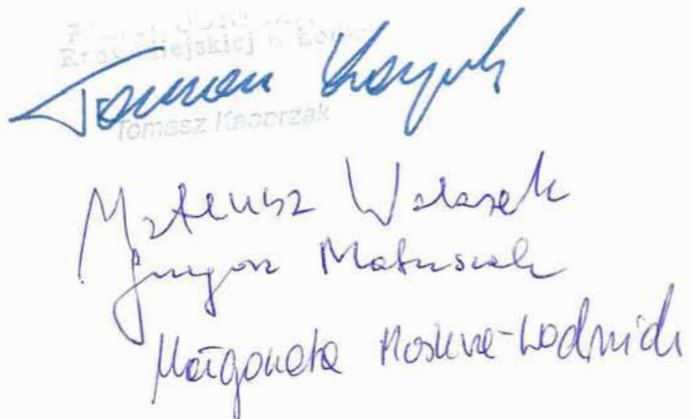 Rady Miejskiej w Łodzi
Tomasz Kacprzak
Tomasz Kacprzak
Mateusz Walasek
Grzegorz Matuszak
Małgorzata Moskwa-Wodnicka